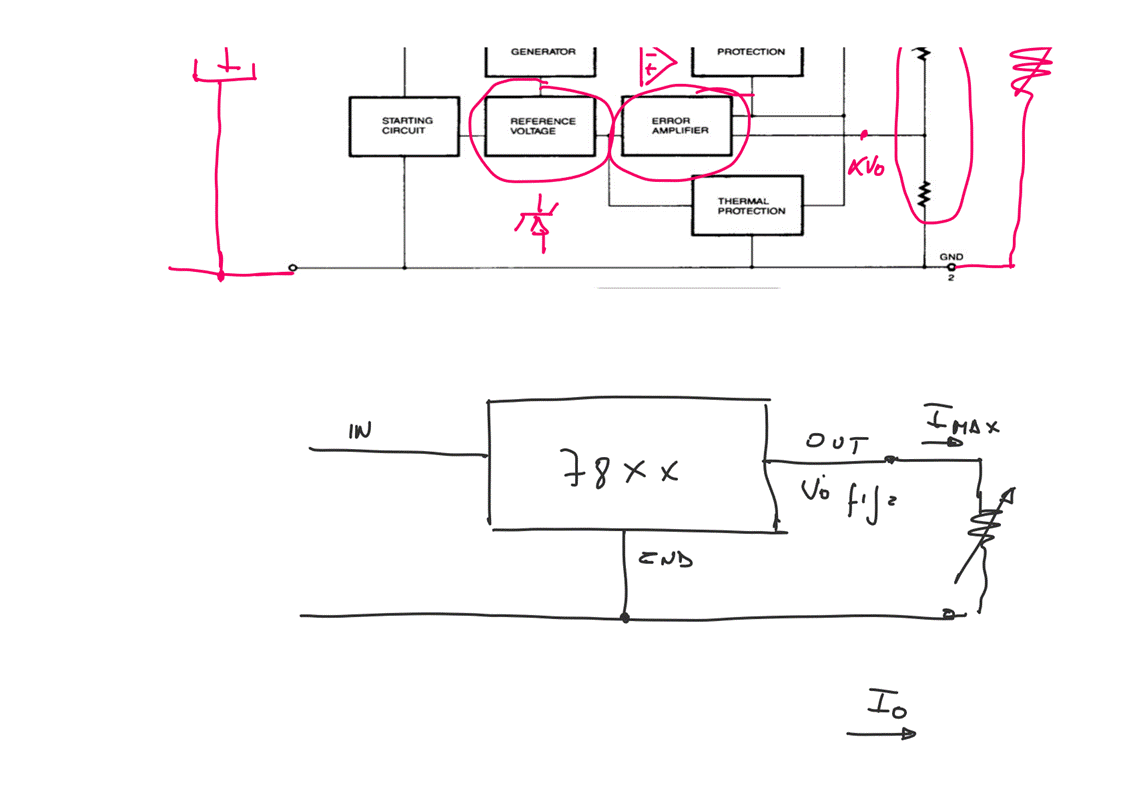 GENERATOR
PROTECTION
STARTING
CIRCUIT
REFERENCE
VOLTAGE
ERROR
AMPLIFIER
αVo
THERMAL
PROTECTION
GND
2
IN
78XX
OUT
IMAX
Vo
GND
Io